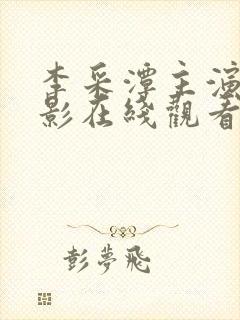 李采潭主演
影在綫觀看
彭夢飛